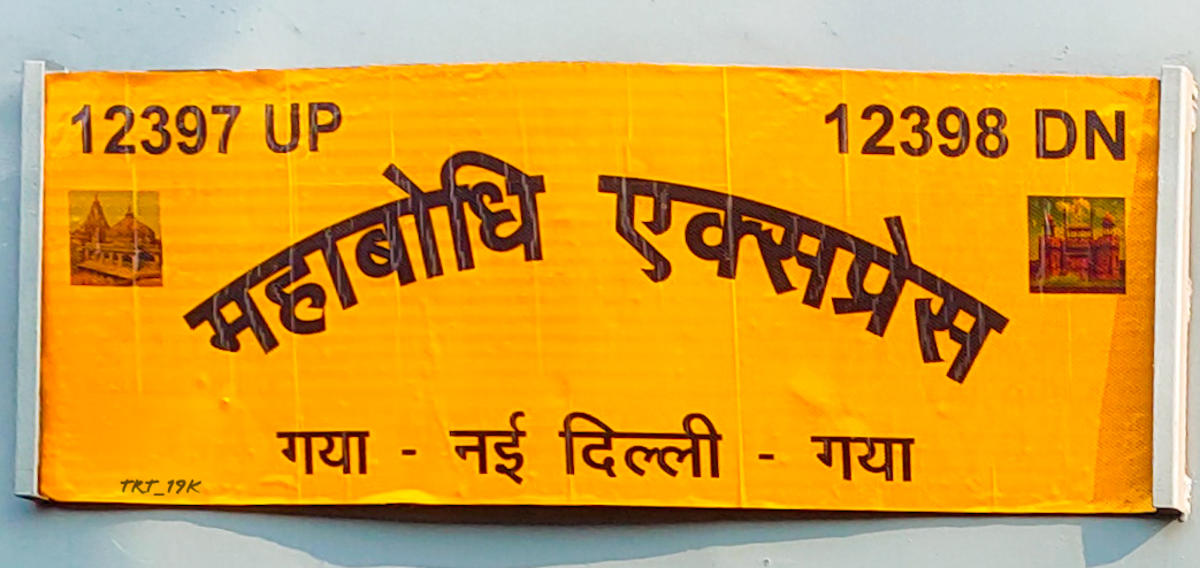 12397 UP 12398 DN
महाबोधि एक्सप्रेस
गया - नई दिल्ली - गया
TRT_19K